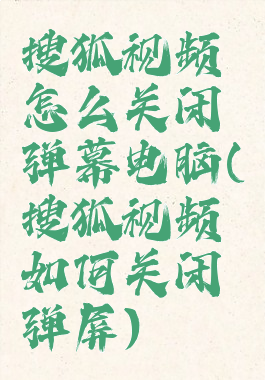 搜狐视频
怎么关闭
弹幕电脑(
搜狐视频
如何关闭
弹屏)